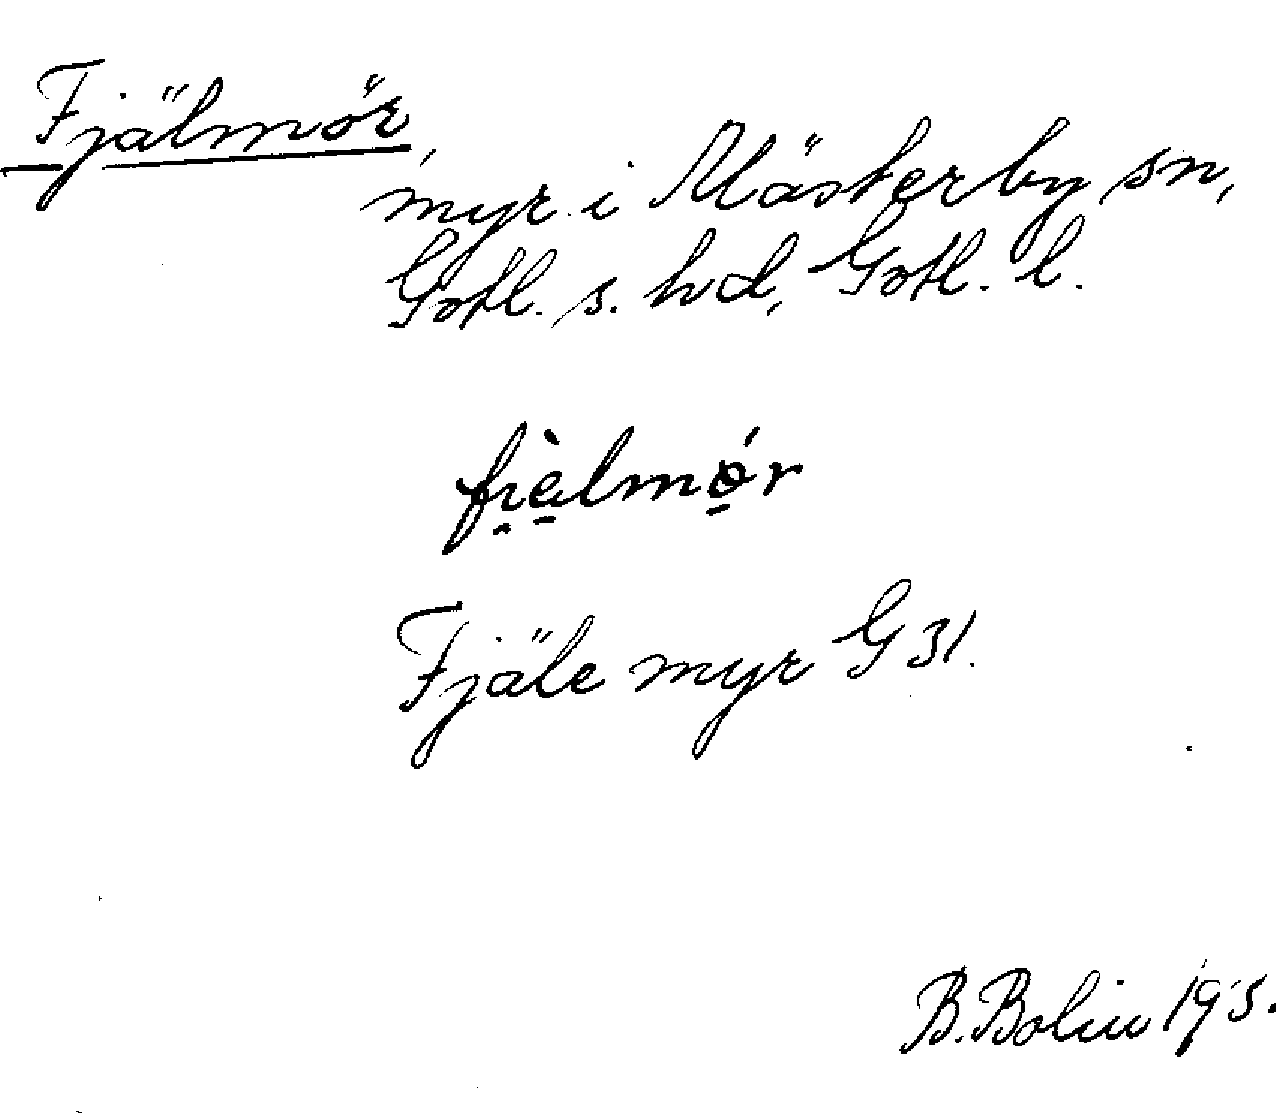 Fjälmör,
myr i Mästerby sn,
Gotl. s. hd, Gotl. l.
fi̯àlmǿr
Fjäle myr G 31.
B. Bolin 195.